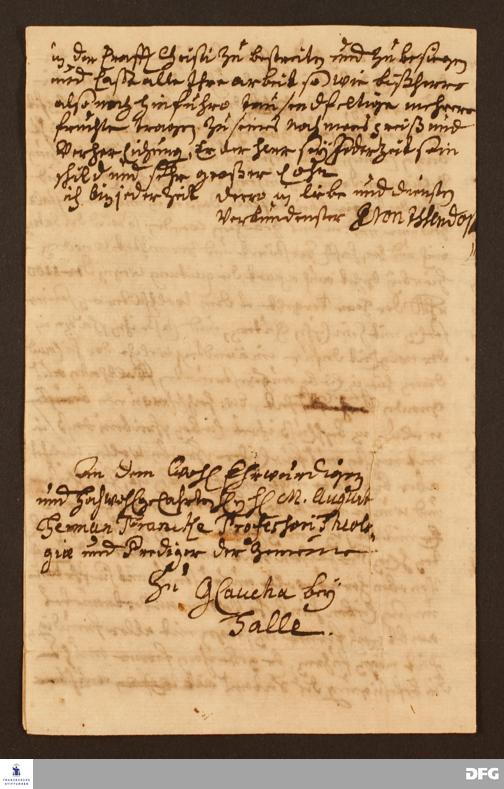 in der Krafft Christi zu bestreiten und zu besiegen
und laße alle Ihre arbeit so wie bißhero
also noch hinführo tausendfeltige mehrere
früchte tragen zu seines nahmens preiß und
verherlichung, Er der herr sey Jederzeit sein
schild und sehr großer Lohn
ich bin jederzeit dero in liebe und diensten
verbundenster
An dem WohlEhrwürdigen
und Hochwohlgelahrten H. M. August
Herman Francke Professori Theolo-
giæ und Prediger der Gemeine
Zu Glaucha bey
Halle.
FRANCKESCHE
STIFTUNGEN
DFG